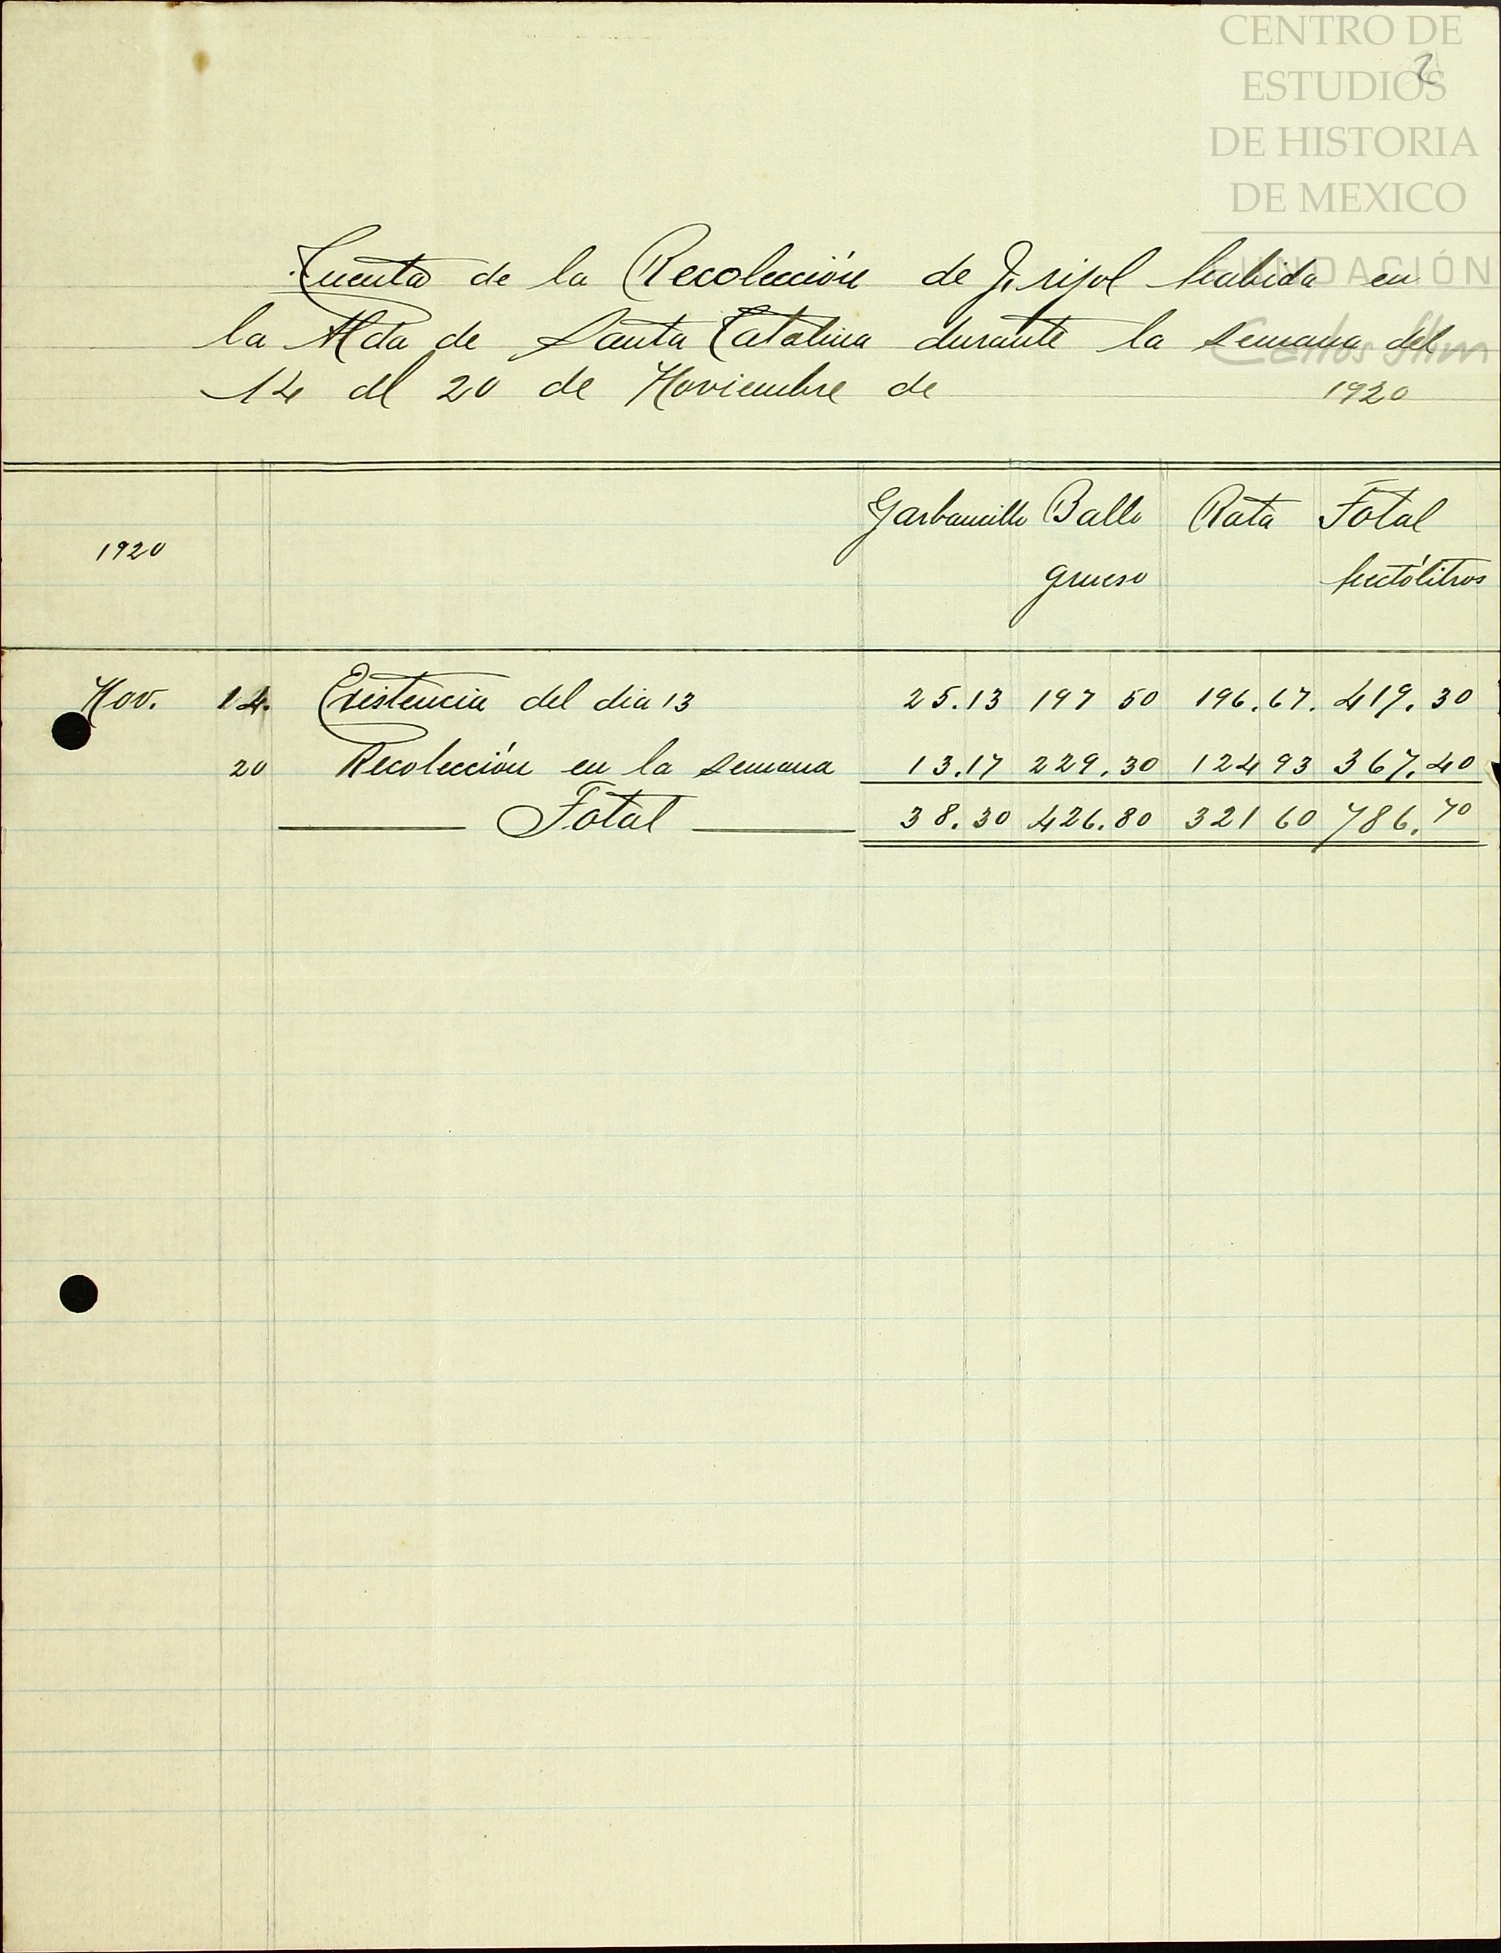 CENTRO DE
ESTUDIOS
DE HISTORIA
DE MEXICO
FUNDACIÓN
Carlos Slim
2
Cuenta de la Recolección de Frijol habida en
la Hda de Santa Catalina durante la semana del
14 al 20 de Noviembre de 1920
1920 Garbancillo Ballo Rata Total
grueso hectólitros
Nov. 14. Existencia del dia 13 25.13 197 50 196.67. 419.30
20 Recolección en la semana 13.17 229.30 124 93 367.40
Total 38.30 426.80 321 60 786.70